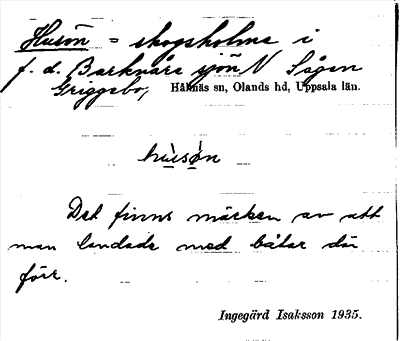 Husön = skogsholme i
f. d. Barknåre sjön N Sågen
Griggebo, Hållnäs sn, Olands hd, Uppsala län.
hùsø̀n
Det finns märken av att
man landade med båtar där
förr.
Ingegärd Isaksson 1935.